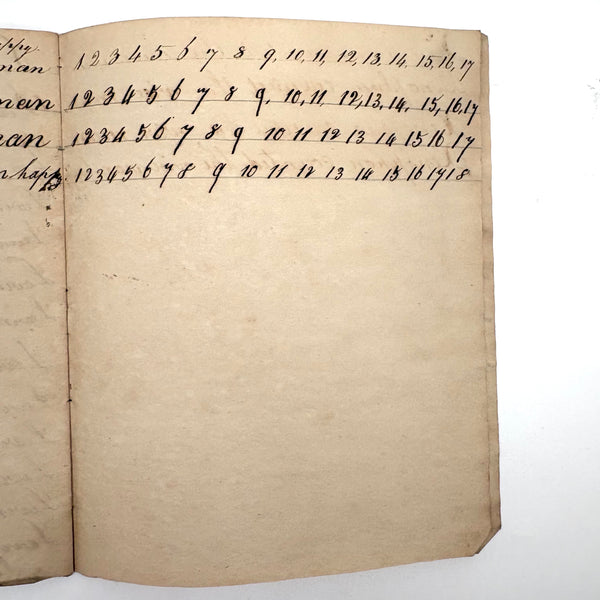 man 1 2 3 4 5 6 7 8 9, 10, 11, 12, 13, 14, 15, 16, 17
man 1 2 3 4 5 6 7 8 9, 10, 11, 12, 13, 14, 15, 16, 17
man 1 2 3 4 5 6 7 8 9 10 11 12 13 14 15 16 17
happy. 1 2 3 4 5 6 7 8 9 10 11 12 13 14 15 16 17 18